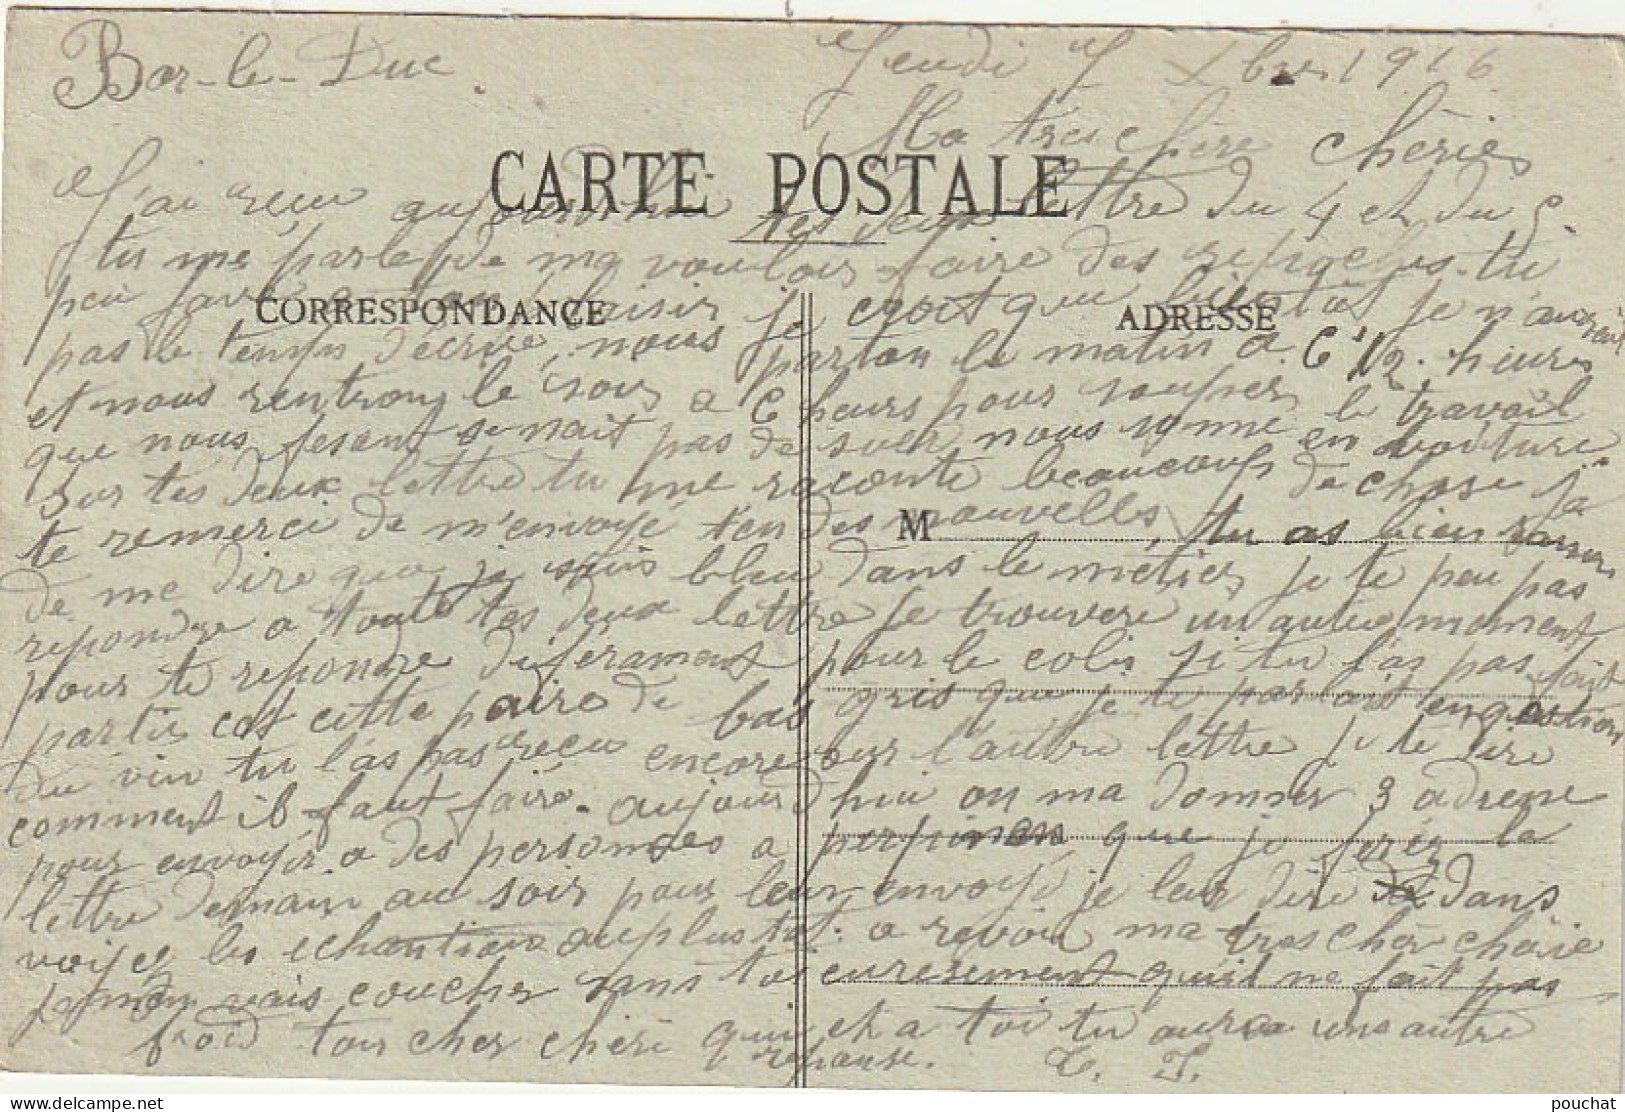 Bar-le-Duc. Jeudi 7 Xbre 1916
Ma très chère Chérie
CARTE POSTALE
J'ai reçu aujourd'hui tes deux lettre du 4 et du 5.
tu me parle de ma vouloir faire des reproches tu
peu plaisir je croit que bientôt je n'aurait
CORRESPONDANCE ADRESSE
pas le temps d'écrire, nous parton le matin a 6 1/2 heures
et nous rentrong le soir a 6 heurs pour souper le travail
que nous fesont se nait pas de suer nous somme en voiture.
sur tes deux lettre tu me raconte beaucoup de chose je
te remerci de m'envoyé t'en des nouvelles, tu as bien raison
M
de me dire que je suis bleu dans le métier je te peu pas
répondre a toute tes deux lettre je trouvere un autre moment
pour te repondre diferament pour le colis si tu l'as pas fait
partir est cette paire de bas gris que je te parlait en question
du vin tu l'as pas reçu encore sur l'autre lettre je te dire
comment il faut faire. aujourd'hui on ma donner 3 adrene
pour envoyér a des personnes a que je ferér la
lettre demain au soir pour leur envoyé je leur dire dans
voiyer les echantions auplustot. a revoir ma tres chèr chérie
je m'en vais coucher sans toi eureresement qu'il ne fait pas
froid ton cher chéri qui et a toi tu aura une autre
reponse. T. J.
pouchat